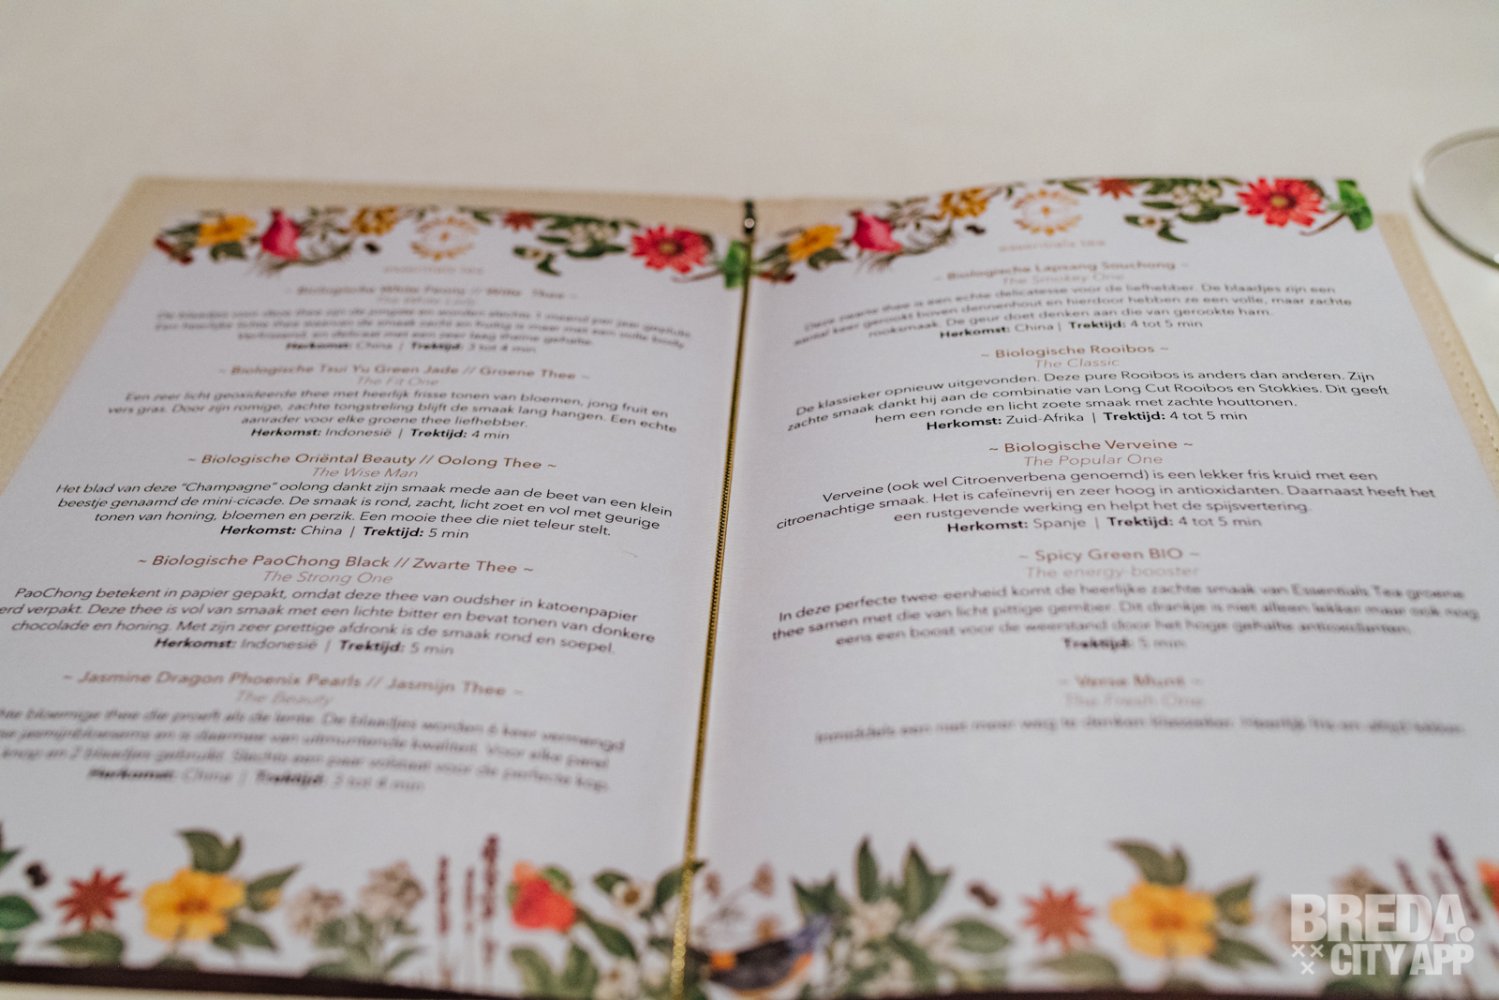 essentials tea
~ Biologische White Peony // Witte Thee ~
The White Lady
Herkomst: China | Trektijd: 3 tot 4 min
~ Biologische Tsui Yu Green Jade // Groene Thee ~
The Fit One
Een zeer licht geoxideerde thee met heerlijk frisse tonen van bloemen, jong fruit en
vers gras. Door zijn romige, zachte tongstreling blijft de smaak lang hangen. Een echte
aanrader voor elke groene thee liefhebber.
Herkomst: Indonesië | Trektijd: 4 min
~ Biologische Oriëntal Beauty // Oolong Thee ~
The Wise Man
Het blad van deze "Champagne" oolong dankt zijn smaak mede aan de beet van een klein
beestje genaamd de mini-cicade. De smaak is rond, zacht, licht zoet en vol met geurige
tonen van honing, bloemen en perzik. Een mooie thee die niet teleur stelt.
Herkomst: China | Trektijd: 5 min
~ Biologische PaoChong Black // Zwarte Thee ~
The Strong One
PaoChong betekent in papier gepakt, omdat deze thee van oudsher in katoenpapier
erd verpakt. Deze thee is vol van smaak met een lichte bitter en bevat tonen van donkere
chocolade en honing. Met zijn zeer prettige afdronk is de smaak rond en soepel.
Herkomst: Indonesië | Trektijd: 5 min
~ Jasmine Dragon Phoenix Pearls // Jasmijn Thee ~
The Beauty
bloemige thee die proeft als de lente. De blaadjes worden 6 keer vermengd
jasmijnbloesems en is daarmee van uitmuntende kwaliteit. Voor elke parel
knop en 2 blaadjes gebruikt. Slechts een paar volstaat voor de perfecte kop.
Herkomst: China | Trektijd: 3 tot 4 min
essentials tea
~ Biologische Lapsang Souchong ~
The Smokey One
Deze zwarte thee is een echte delicatesse voor de liefhebber. De blaadjes zijn een
aantal keer gerookt boven dennenhout en hierdoor hebben ze een volle, maar zachte
rooksmaak. De geur doet denken aan die van gerookte ham.
Herkomst: China | Trektijd: 4 tot 5 min
~ Biologische Rooibos ~
The Classic
De klassieker opnieuw uitgevonden. Deze pure Rooibos is anders dan anderen. Zijn
zachte smaak dankt hij aan de combinatie van Long Cut Rooibos en Stokkies. Dit geeft
hem een ronde en licht zoete smaak met zachte houttonen.
Herkomst: Zuid-Afrika | Trektijd: 4 tot 5 min
~ Biologische Verveine ~
The Popular One
Verveine (ook wel Citroenverbena genoemd) is een lekker fris kruid met een
citroenachtige smaak. Het is cafeïnevrij en zeer hoog in antioxidanten. Daarnaast heeft het
een rustgevende werking en helpt het de spijsvertering.
Herkomst: Spanje | Trektijd: 4 tot 5 min
~ Spicy Green BIO ~
The energy-booster
In deze perfecte twee-eenheid komt de heerlijke zachte smaak van Essentials Tea groene
thee samen met die van licht pittige gember. Dit drankje is niet alleen lekker maar ook nog
eens een boost voor de weerstand door het hoge gehalte antioxidanten.
Trektijd: 5 min
~ Verse Munt ~
The Fresh One
Inmiddels een niet meer weg te denken klassieker. Heerlijk fris en altijd lekker.
BREDA.
CITY APP